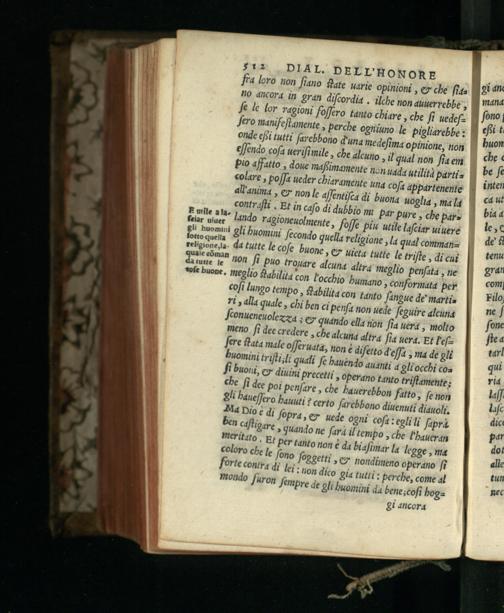 512 DIAL. DELL'HONORE
fra loro non siano state uarie opinioni, & che sia-
no ancora in gran discordia. ilche non auuerrebbe,
se le lor ragioni fossero tanto chiare, che si uedes-
sero manifestamente, perche ogniuno le pigliarebbe:
onde eßi tutti sarebbono d'una medesima opinione, non
essendo cosa uerisimile, che alcuno, il qual non sia em
pio affatto, doue maßimamente non uada utilità parti-
colare, possa ueder chiaramente una cosa appartenente
all'anima, & non le assentisca di buona uoglia, ma la
contrasti. Et in caso di dubbio mi par pure, che par-
lando ragioneuolmente, fosse piu utile lasciar uiuere
gli huomini secondo quella religione, la qual comman-
da tutte le cose buone, & uieta tutte le triste, di cui
non si puo trouare alcuna altra meglio pensata, ne
meglio stabilita con l'occhio humano, conformata per
così lungo tempo, stabilita con tanto sangue de' marti-
ri, alla quale, chi ben ci pensa non uede seguire alcuna
sconueneuolezza; & quando ella non sia uera, molto
meno si dee credere, che alcuna altra sia uera. Et l'es-
sere stata male osseruata, non è difetto d'essa, ma de gli
huomini tristi, li quali se hauendo auanti a gli occhi co-
si buoni, & diuini precetti, operano tanto tristamente;
che si dee poi pensare, che hauerebbon fatto, se non
gli hauessero hauuti? certo sarebbono diuenuti diauoli.
Ma Dio è di sopra, & uede ogni cosa: egli li saprà
ben castigare, quando ne sarà il tempo, che l'haueran
meritato. Et per tanto non è da biasimar la legge, ma
coloro che le sono soggetti, & nondimeno operano si
forte contra di lei: non dico gia tutti: perche, come al
mondo furon sempre de gli huomini da bene; così hog-
gi ancora
E utile a la-
sciar uiuer
gli huomini
sotto quella
religione, la
quale cōman
da tutte le
cose buone.